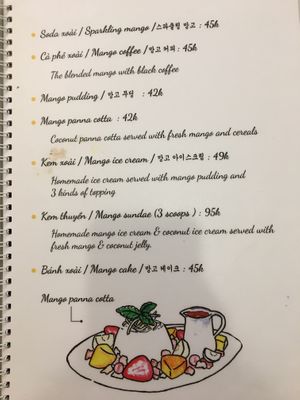 Soda xoài / Sparkling mango / 스파클링 망고 : 45k
Cà phê xoài / Mango coffee / 망고 커피 : 45k
The blended mango with black coffee
Mango pudding / 망고 푸딩 : 42k
Mango panna cotta : 42k
Coconut panna cotta served with fresh mango and cereals
Kem xoài / Mango ice cream / 망고 아이스크림 : 49k
Homemade ice cream served with mango pudding and
3 kinds of topping
Kem thuyền / Mango sundae (3 scoops) : 95k
Homemade mango ice cream & coconut ice cream served with
fresh mango & coconut jelly.
Bánh xoài / Mango cake / 망고 케이크 : 45k
Mango panna cotta